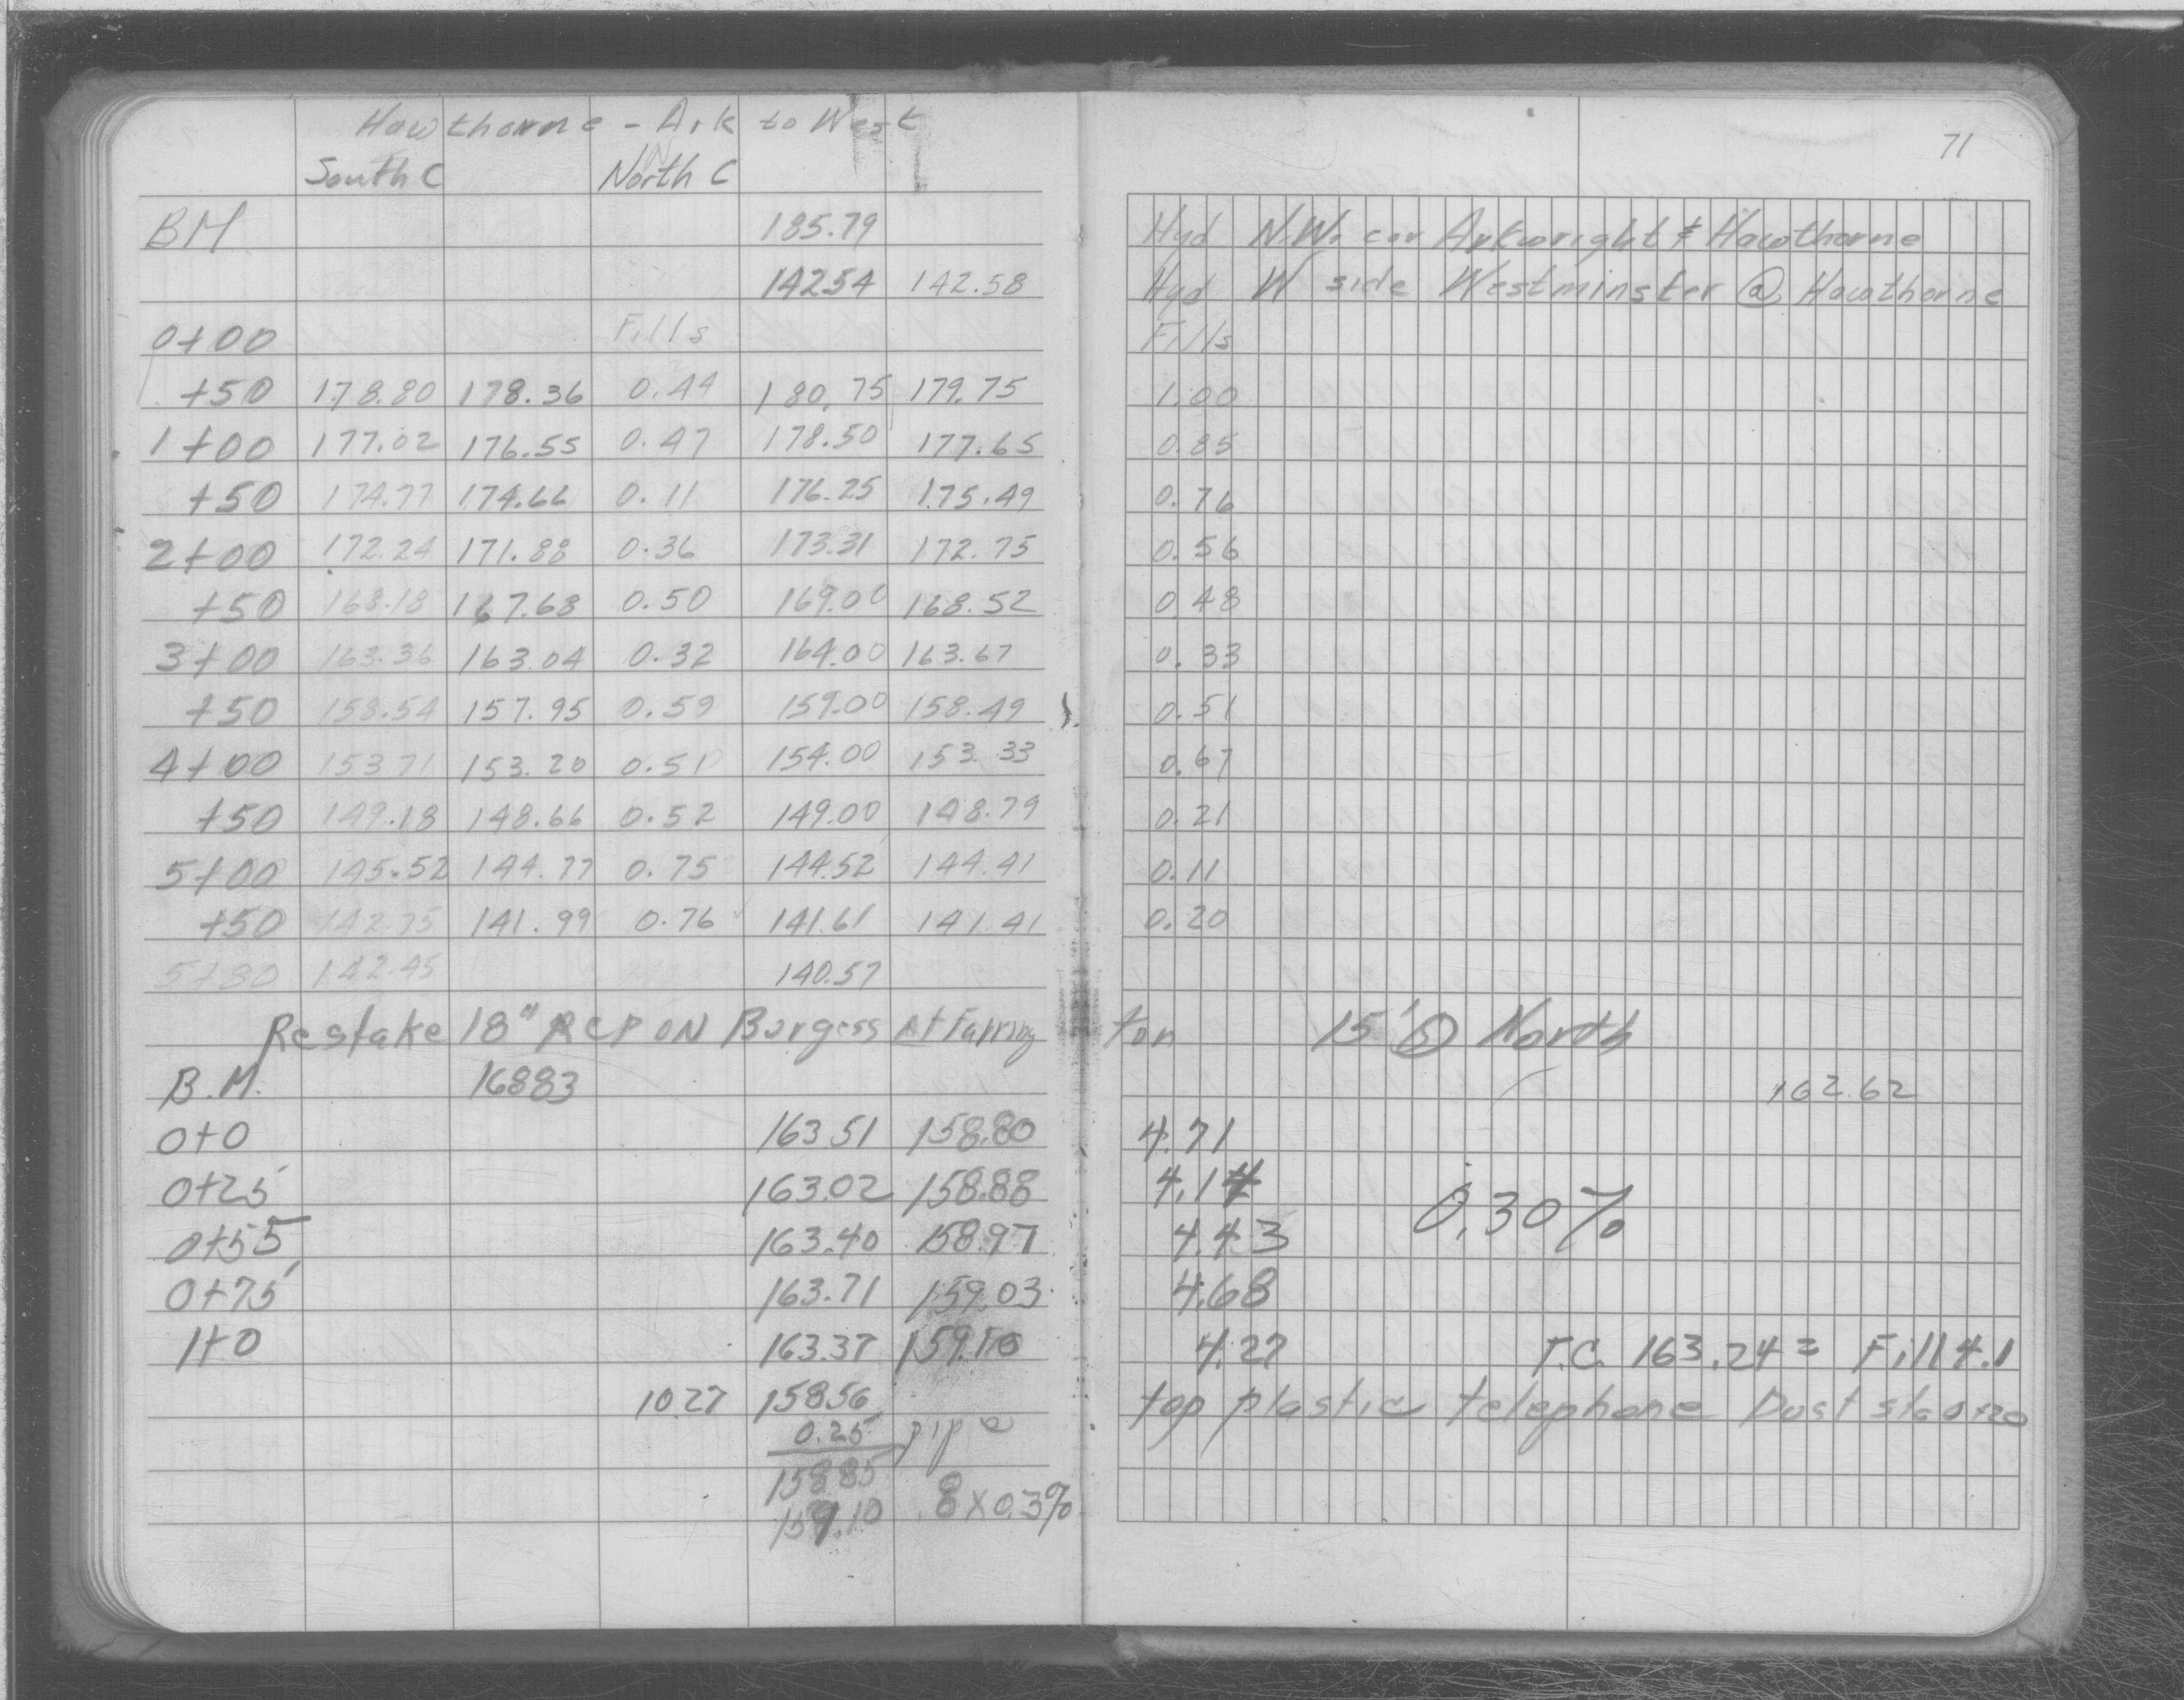 Hawthorne - Ark to West
71
South C North C
BM 185.79 Hyd N.W. cor Arkwright & Hawthorne
142.54 142.58 Hyd W side Westminster @ Hawthorne
0+00 Fills Fills
+50 178.80 178.36 0.44 180.75 179.75 1.00
1+00 177.02 176.55 0.47 178.50 177.65 0.85
+50 174.77 174.66 0.11 176.25 175.49 0.76
2+00 172.24 171.88 0.36 173.31 172.75 0.56
+50 168.18 167.68 0.50 169.00 168.52 0.48
3+00 163.36 163.04 0.32 164.00 163.67 0.33
+50 158.54 157.95 0.59 159.00 158.49 0.51
4+00 153.71 153.20 0.51 154.00 153.33 0.67
+50 149.18 148.66 0.52 149.00 148.79 0.21
5+00 145.52 144.77 0.75 144.52 144.41 0.11
+50 142.75 141.99 0.76 141.61 141.41 0.20
5+80 142.45 140.57
Restake 18" RCP ON Burgess At Farrington 15' North
B.M. 16883 162.62
0+0 163.51 158.80 4.71
0+25 163.02 158.88 4.14
0+55 163.40 158.97 4.43 0.30%
0+75 163.71 159.03 4.68
1+0 163.37 159.10 4.27 T.C. 163.24 = Fill 4.1
10.27 158.56 top plastic telephone Duct sta 0+20
0.25 pipe
158.85
159.10 .8 x 0.3%